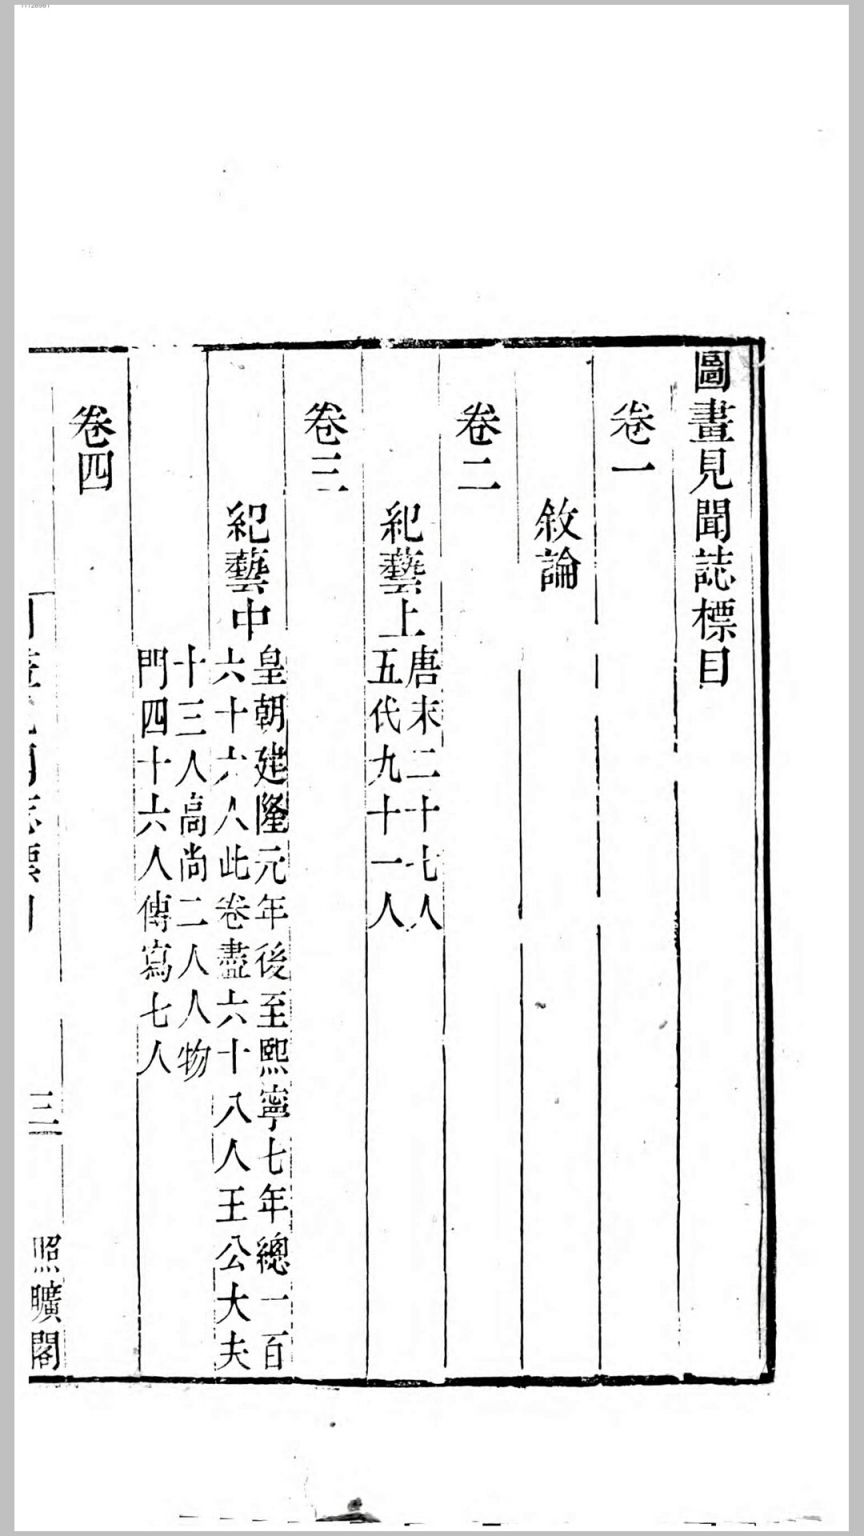 圖畫見聞誌標目
卷一
敘論
卷二
紀藝上
唐末二十七人
五代九十一人
卷三
紀藝中
皇朝建隆元年後至熙寧七年總一百
六十六人此卷盡六十八人王公大夫
十三人高尚二人人物
門四十六人傳寫七人
卷四
三
照曠閣